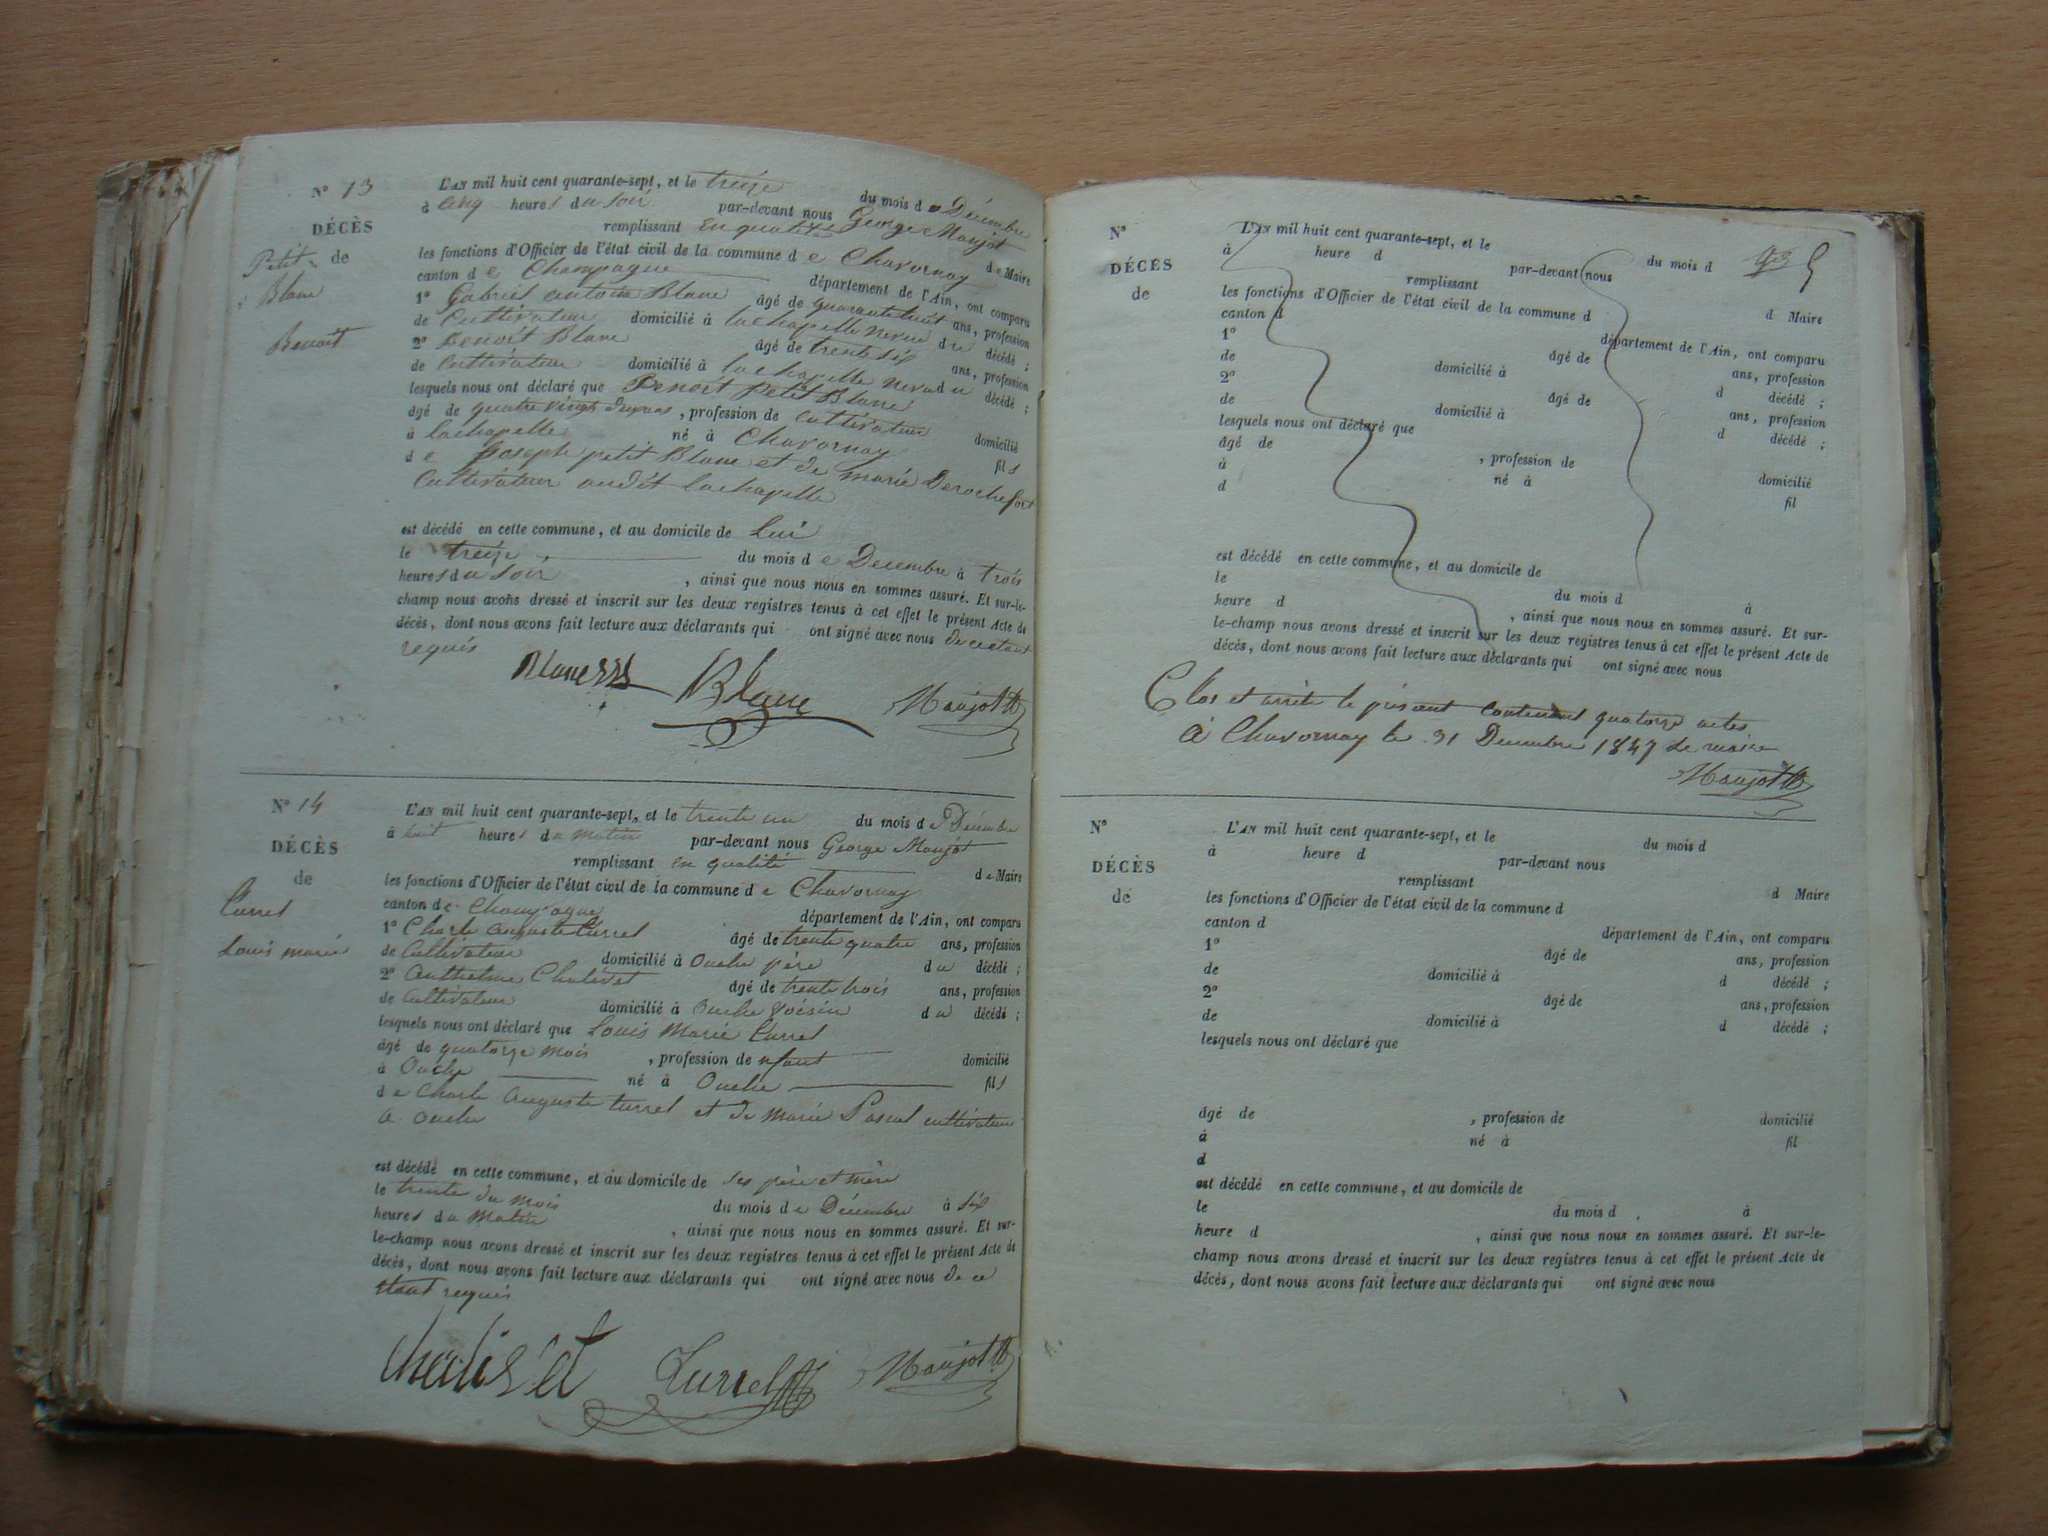 N° 13
DÉCÈS
Petit- de
Blanc
Benoit
L'AN mil huit cent quarante-sept, et le treize du mois de Décembre
à cinq heures du soir par-devant nous George Maujot
remplissant en qualité de Maire
les fonctions d'Officier de l'état civil de la commune de Chavornay
canton de Champagne département de l'Ain, ont comparu
1° Gabriel antoine Blanc âgé de quarante huit ans, profession
de Cultivateur domicilié à lachapelle neveu du décédé ;
2° Benoit Blanc âgé de trente six ans, profession
de Cultivateur domicilié à lachapelle neveu du décédé ;
lesquels nous ont déclaré que Benoit Petit Blanc
âgé de quatre vingt , profession de cultivateur domicilié
à lachapelle né à Chavornay fils
de Joseph petit Blanc et de marie Derochefort
Cultivateur audit lachapelle
est décédé en cette commune, et au domicile de Lui
le treize du mois de Decembre à trois
heures du soir , ainsi que nous nous en sommes assuré. Et sur-le-
champ nous avons dressé et inscrit sur les deux registres tenus à cet effet le présent Acte de
décès, dont nous avons fait lecture aux déclarants qui ont signé avec nous de ce étant
requis
Blanc Maujot
N° 14
DÉCÈS
de
Turrel
Louis marie
L'AN mil huit cent quarante-sept, et le trente un du mois de Décembre
à huit heures du matin par-devant nous George Maujot
remplissant en qualité de Maire
les fonctions d'Officier de l'état civil de la commune de Chavornay
canton de Champagne département de l'Ain, ont comparu
1° Charle auguste turrel âgé de trente quatre ans, profession
de Cultivateur domicilié à Ouche père du décédé ;
2° Anthelme Chalivet âgé de trente trois ans, profession
de Cultivateur domicilié à Ouche voisin du décédé ;
lesquels nous ont déclaré que Louis Marie Turrel
âgé de quatorze mois , profession de enfant domicilié
à Ouche né à Ouche fils
de Charle Auguste turrel et de Marie Pascal cultivateur
à Ouche
est décédé en cette commune, et au domicile de ses père et mère
le trente du mois du mois de Décembre à six
heures du Matin , ainsi que nous nous en sommes assuré. Et sur-
le-champ nous avons dressé et inscrit sur les deux registres tenus à cet effet le présent Acte de
décès, dont nous avons fait lecture aux déclarants qui ont signé avec nous de ce
étant requis
Turrel Maujot
N°
DÉCÈS
de
L'AN mil huit cent quarante-sept, et le du mois d
à heure d par-devant nous
remplissant d Maire
les fonctions d'Officier de l'état civil de la commune d
canton d département de l'Ain, ont comparu
1° âgé de ans, profession
de domicilié à d décédé ;
2° âgé de ans, profession
de domicilié à d décédé ;
lesquels nous ont déclaré que
âgé de , profession de domicilié
à né à fil
d
est décédé en cette commune, et au domicile de
le du mois d à
heure d , ainsi que nous nous en sommes assuré. Et sur-
le-champ nous avons dressé et inscrit sur les deux registres tenus à cet effet le présent Acte de
décès, dont nous avons fait lecture aux déclarants qui ont signé avec nous
Clos et arrêté le présent contenant quatorze actes
à Chavornay le 31 Decembre 1847 Le maire
Maujot
N°
DÉCÈS
de
L'AN mil huit cent quarante-sept, et le du mois d
à heure d par-devant nous
remplissant d Maire
les fonctions d'Officier de l'état civil de la commune d
canton d département de l'Ain, ont comparu
1° âgé de ans, profession
de domicilié à d décédé ;
2° âgé de ans, profession
de domicilié à d décédé ;
lesquels nous ont déclaré que
âgé de , profession de domicilié
à né à fil
d
est décédé en cette commune, et au domicile de
le du mois d à
heure d , ainsi que nous nous en sommes assuré. Et sur-le-
champ nous avons dressé et inscrit sur les deux registres tenus à cet effet le présent Acte de
décès, dont nous avons fait lecture aux déclarants qui ont signé avec nous